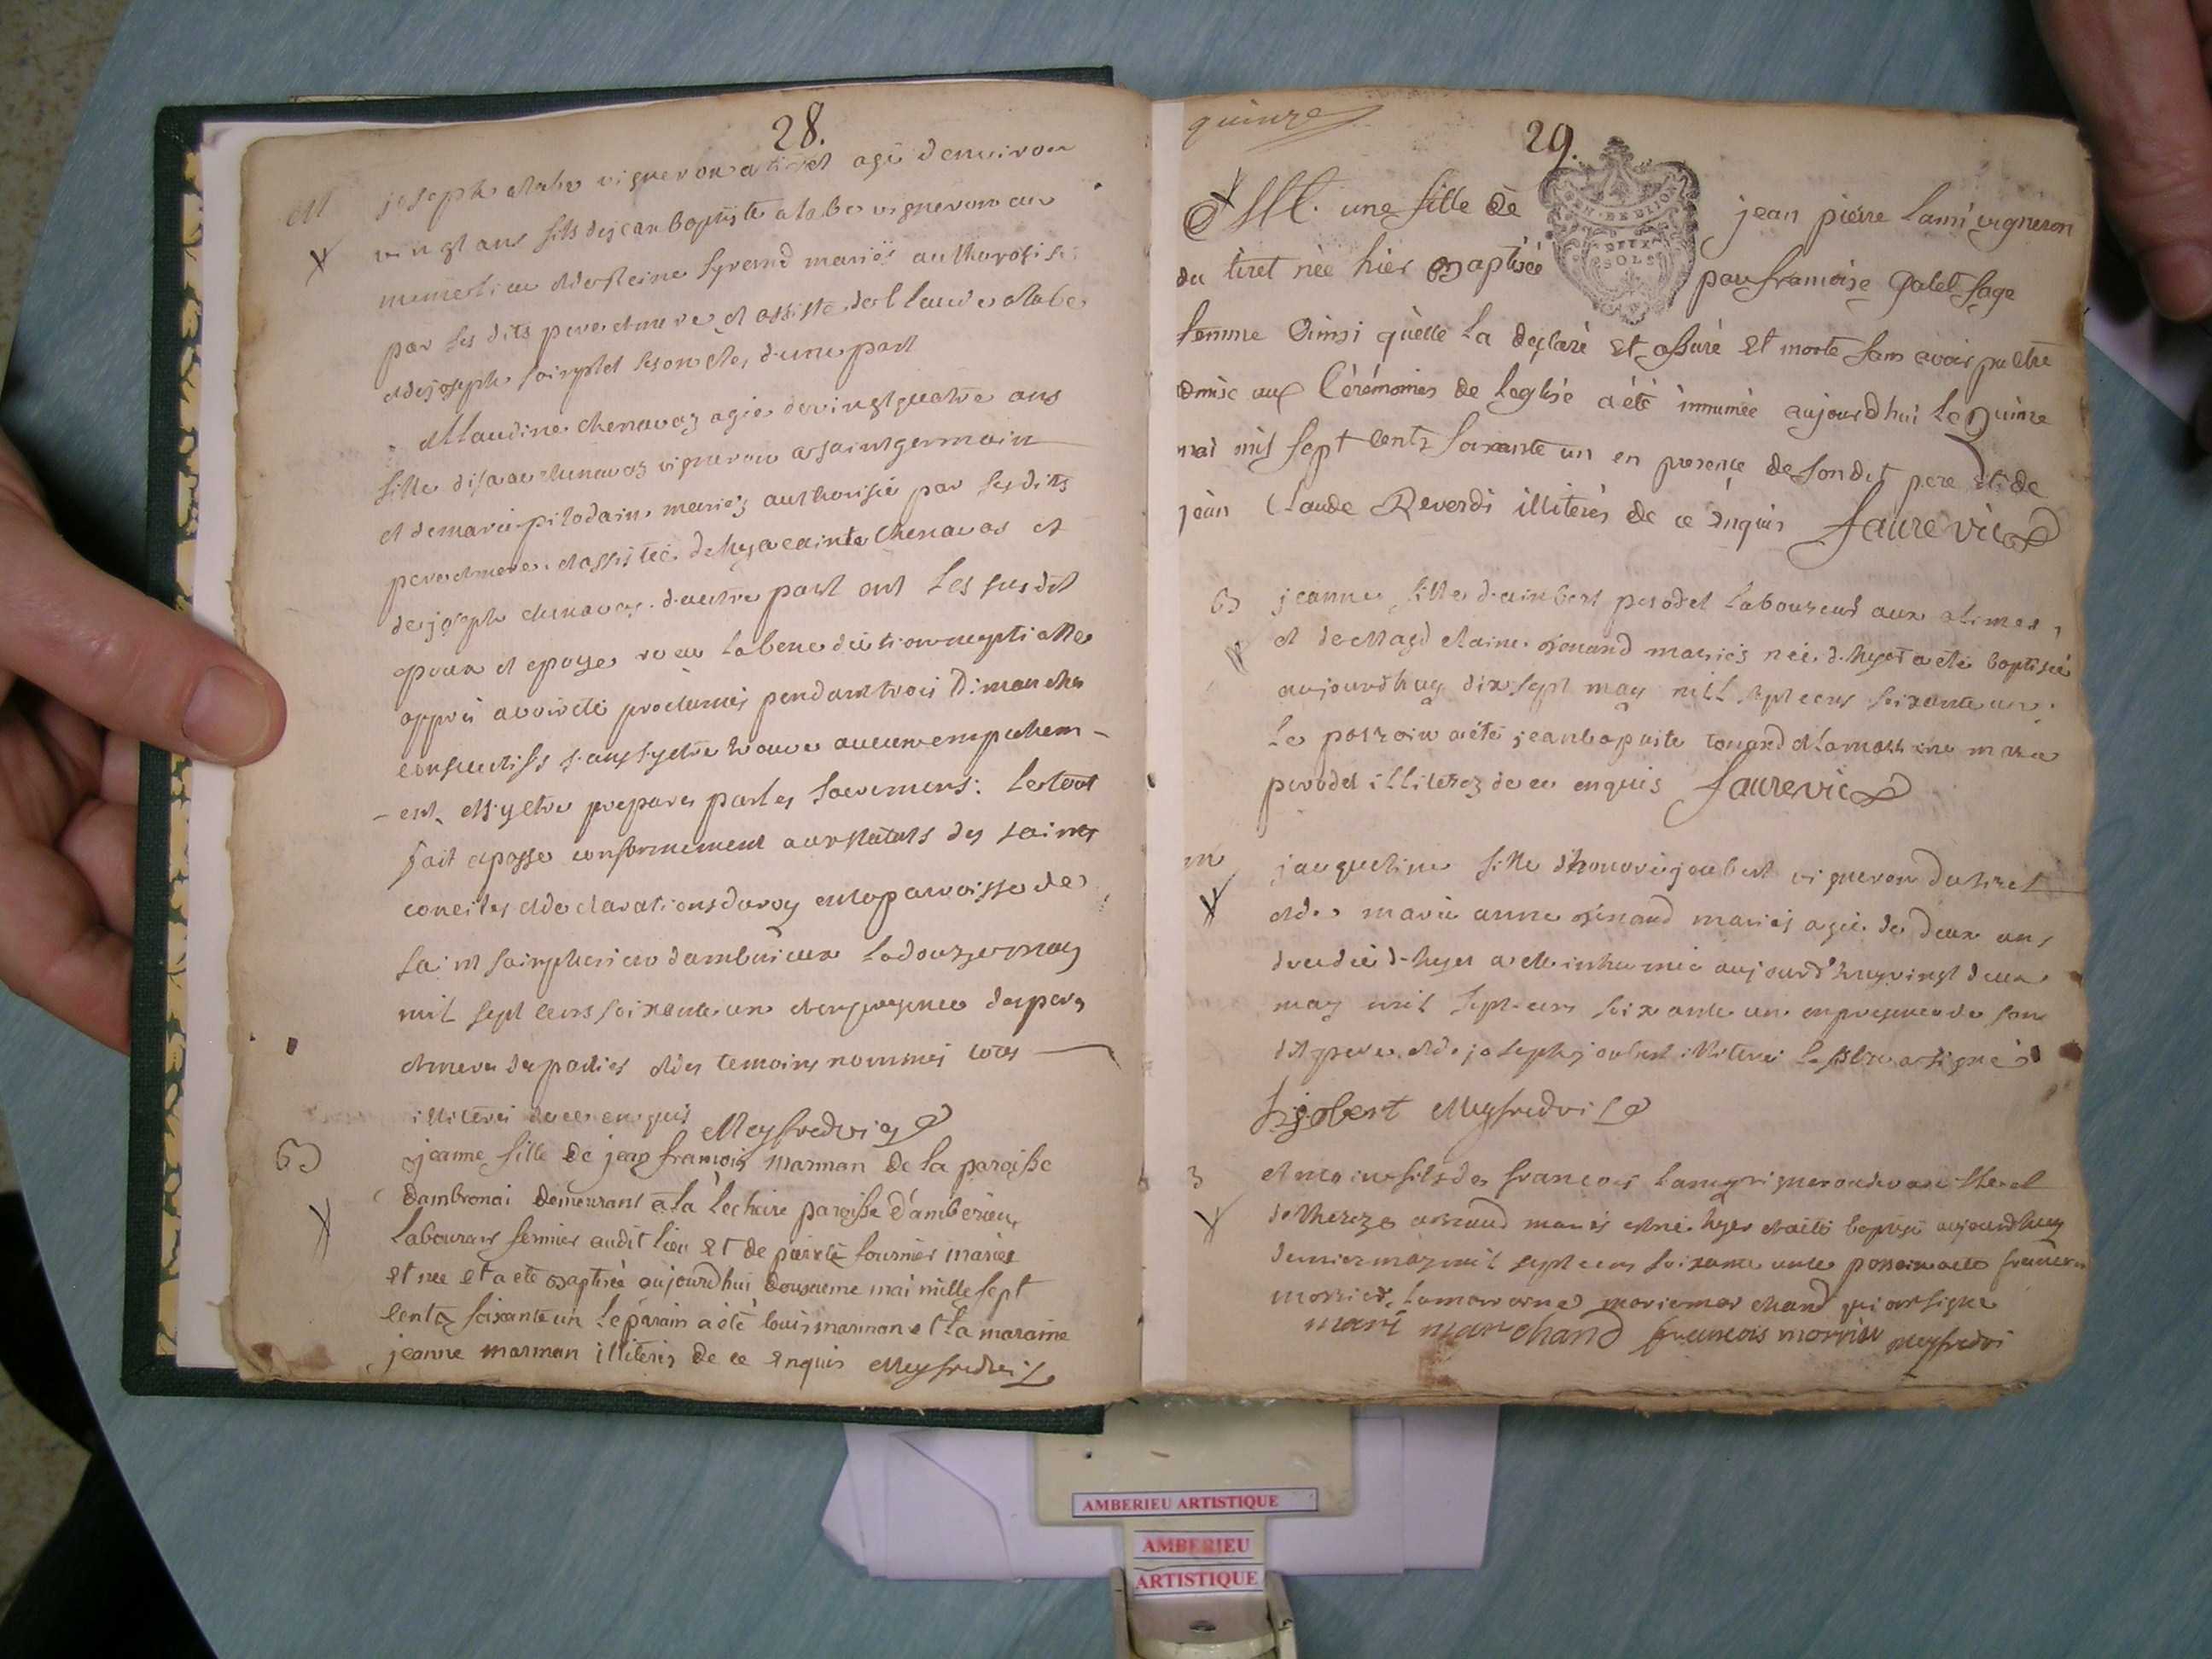 28.
joseph vigneron a tiret agé denviron
vingt ans fils dejean baptiste vigneron au
mesme lieu mariés authorisé
par ses dits pere et mere et assisté de Claude
et dejoseph d'une part
et Claudine chenavaz agée de vingt quatre ans
fille disaac chenavaz vigneron a saint germain
et de marie pilodain mariez authorisée par sesdits
pere et mere et assistée de hyacainte chenavas et
de joseph chenavaz d'autre part ont les susdit
epoux et epouse recu la benediction nuptialle
appres avoir été proclamés pendant trois dimanches
consecutifs sans sy etre trouvé aucun empechem-
-ent et sy etre preparés par les sacremens: le tout
fait et passé conformement aux statuts des saints
conciles et declarations du roy en la paroisse de
saint dambérieux le douze may
mil sept cens soixante un et en presence des peres
et meres des parties et des temoins nommés tous
illiterés de ce enquis Meyfredvic
B jeanne fille de jean francois marman de la paroisse
dambronai demeurant a la Lechere paroisse d'amberieu,
laboureur fermier audit lieu et de fournier mariés
est née et a eté Baptisée aujourdhui dousieme mai mille sept
cents soixante un le parain a été louis marman et la maraine
jeanne marman illiterés de ce enquis Meyfredvic
quinze
29.
GEN. DE DIJON
DEUX
SOLS
M. une fille de jean pierre Lami vigneron
du tiret née hier Baptisée par francoise Galet sage
femme Ainsi qu'elle la declaré et assuré et morte sans avoir pu etre
admise aux Cérémonies de leglise a été innumée aujourdhui le quinze
mai mil sept cents soixante un en presence de sondit pere et de
jean Claude Reverdi illiterés de ce enquis faurevic
B jeanne fille d'aimbert perodet laboureur aux alimes,
et de Magdelaine Bonand mariés née d'hyer a eté baptisée
aujourdhuy dix sept may mill sept cens soixante un.
le parrain a été jean baptiste et la marraine
perodet illiterez de ce enquis faurevic
m jacqueline fille d'honoré joubert vigneron du tiret
et de marie anne mariés agée de deux ans
decedée d'hyer a eté inhumée aujourd'huy vingt deux
may mil sept cens soixante un en presence de son
dit pere et de joseph joubert illiteré
Meyfredvic
fils de francois lamy vigneron de
de mariés est né hyer et a été baptisé aujourdhuy
dernier may mil sept cens soixante un le parrain a eté francois
morrier, la marraine marie marchand qui ont signé
mari marchand francois morrier meyfredvi
AMBERIEU ARTISTIQUE
AMBERIEU
ARTISTIQUE